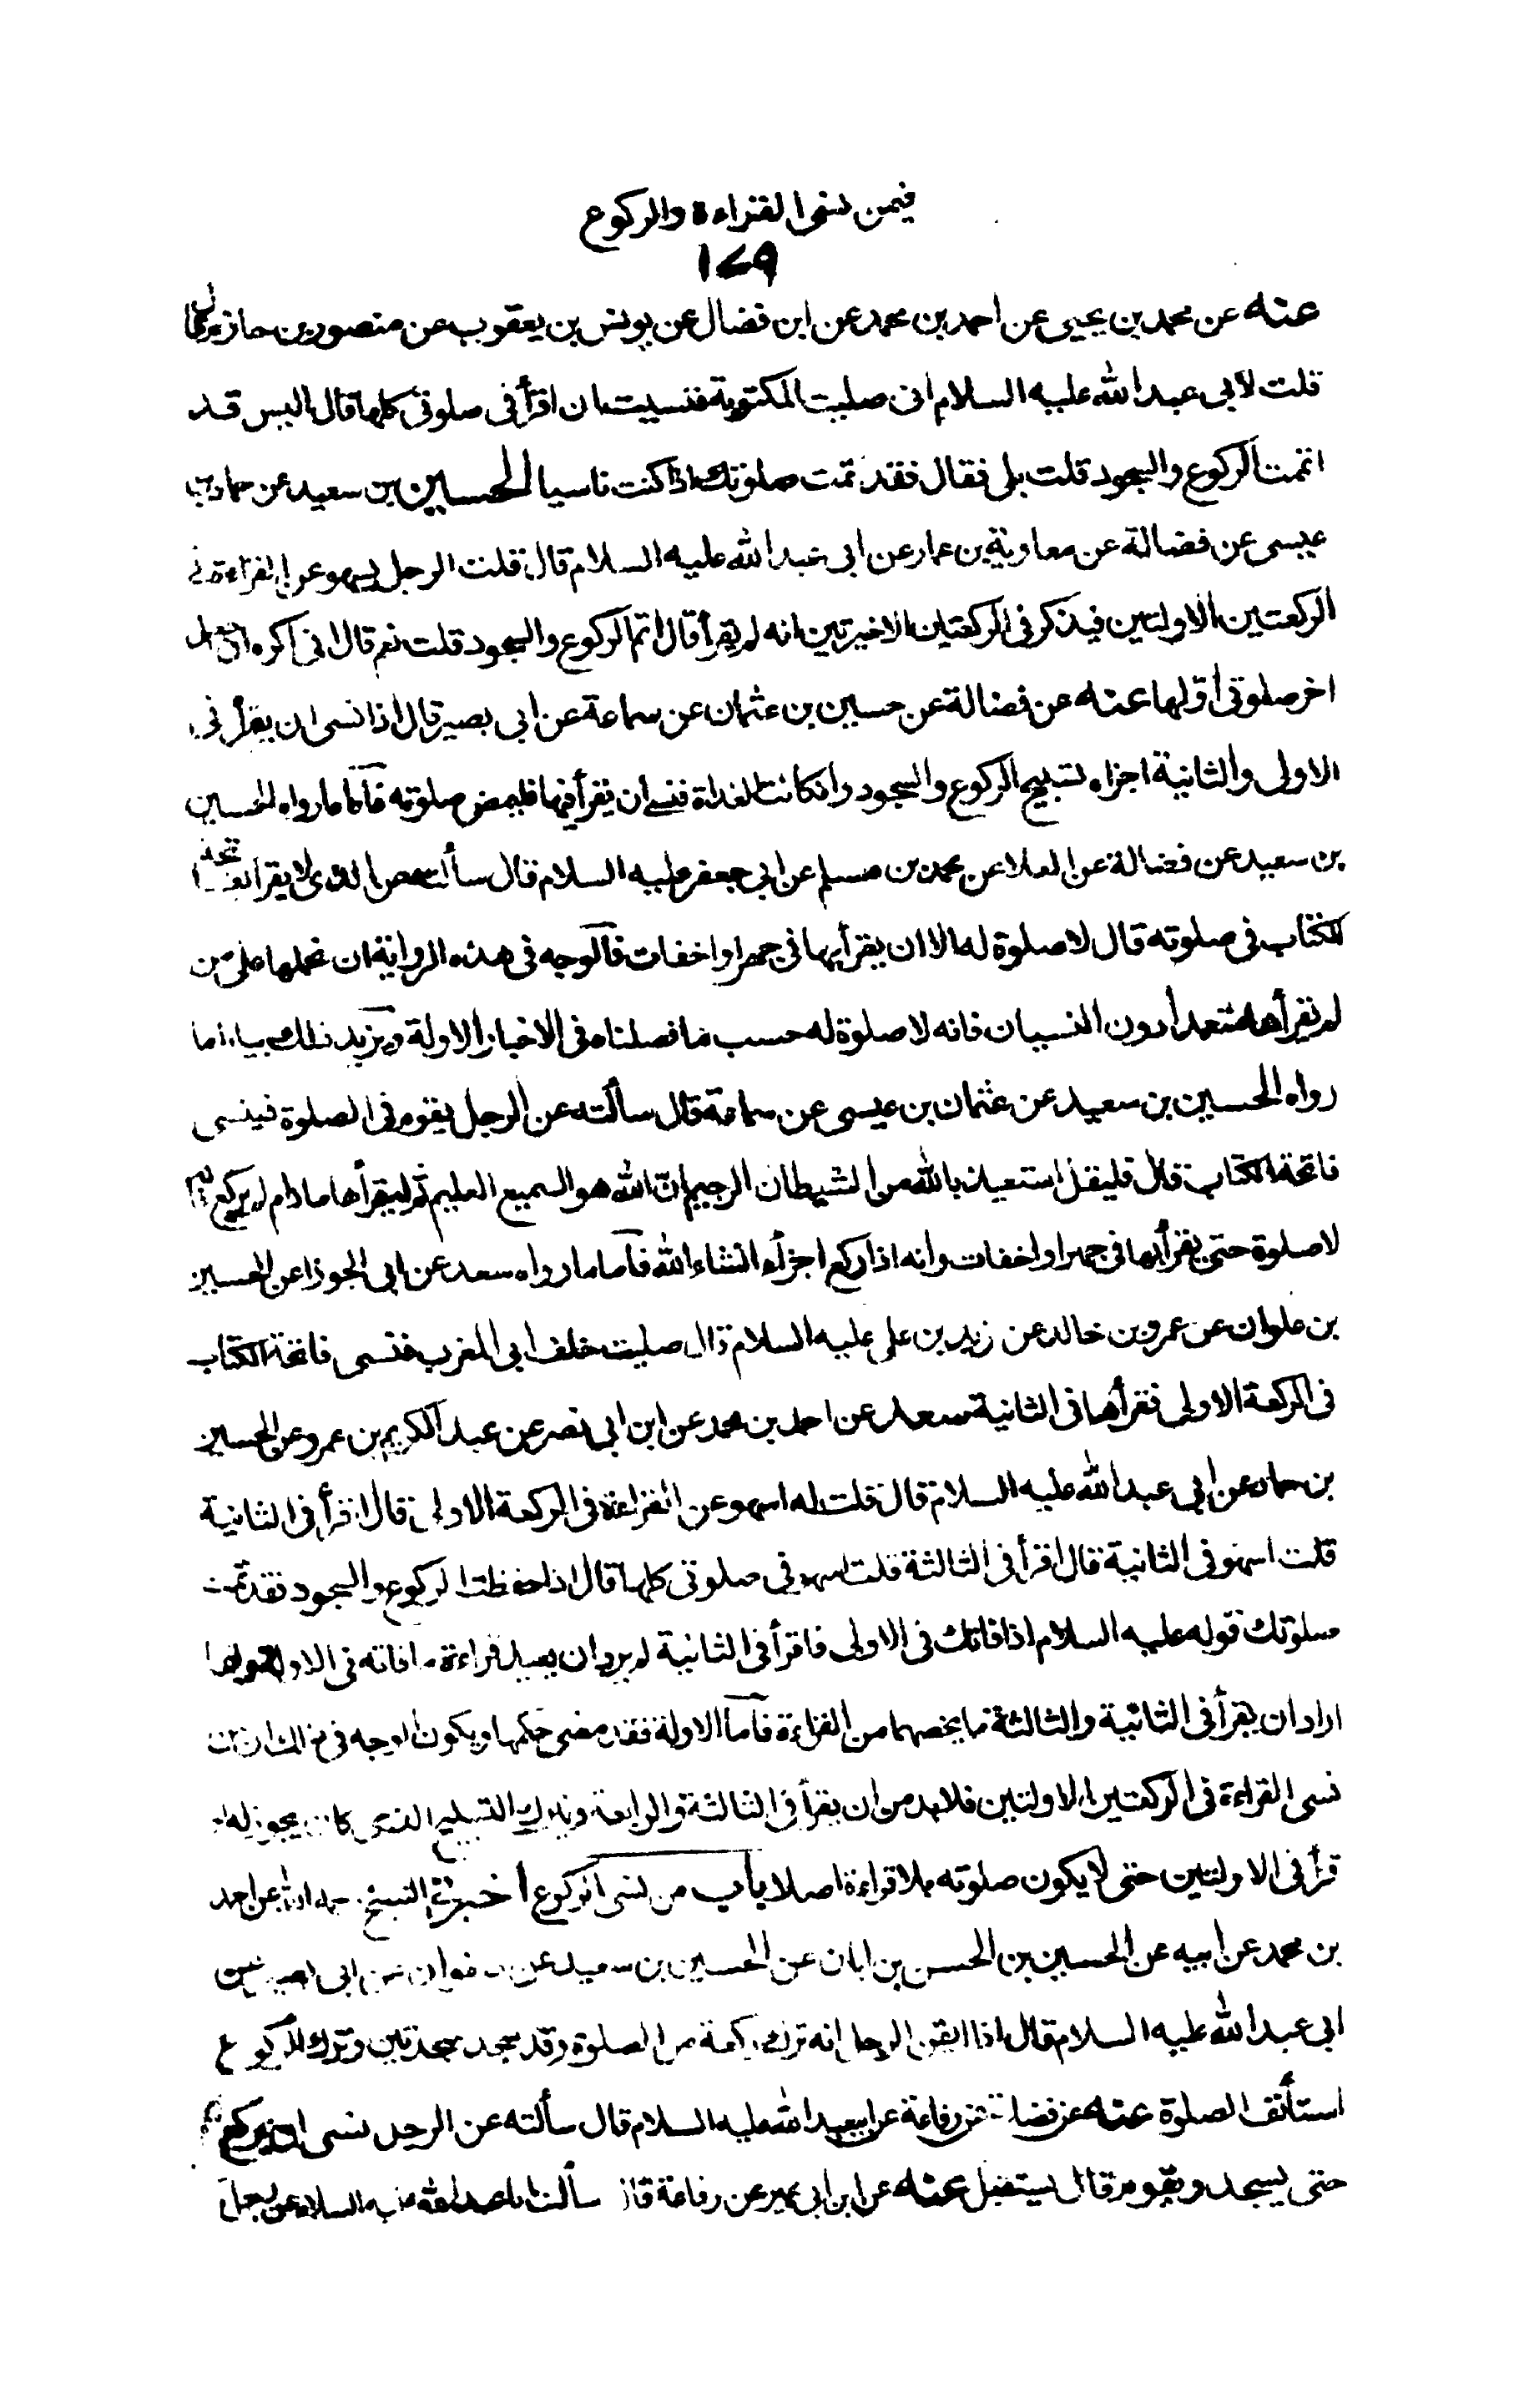 فيمن نسى القراءة والركوع
١٧٩
عنه عن محمد بن يحيى عن احمد بن محمد عن ابن فضال عن يونس بن يعقوب عن منصور بن حازم قال
قلت لأبى عبد الله عليه السلام انى صليت المكتوبة فنسيت ان اقرأ فى صلوتى كلها قال اليس قد
اتممت الركوع والسجود قلت بلى فقال فقد تمت صلوتك اذا كنت ناسيا الحسين بن سعيد عن حماد بن
عيسى عن فضالة عن معاوية بن عمار عن ابى عبد الله عليه السلام قال قلت الرجل يسهو عن القراءة فى
الركعتين الاولتين فيذكر فى الركعتين الاخيرتين انه لم يقرأ قال اتم الركوع والسجود قلت نعم قال انى اكره ان اجعل
اخر صلوتى أولها عنه عن فضالة عن حسين بن عثمان عن سماعة عن ابى بصير قال اذا نسى ان يقرأ فى
الاولى والثانية اجزاه تسبيح الركوع والسجود وانكانت الغداة فنسى ان يقرأ فيها فليمض صلوته فأما ما رواه الحسين
بن سعيد عن فضالة عن العلا عن محمد بن مسلم عن ابى جعفر عليه السلام قال سألته عن الذى لا يقرأ بفاتحة
الكتاب فى صلوته قال لا صلوة له الا ان يقرأ بها فى جهر او اخفات فالوجه فى هذه الرواية ان نحملها على من
لم يقرأها متعمدا دون النسيان فانه لا صلوة له حسب ما فصلناه فى الاخبار الاولة ويزيد ذلك بيانا ما
رواه الحسين بن سعيد عن عثمان بن عيسى عن سماعة قال سألته عن الرجل يقوم فى الصلوة فينسى
فاتحة الكتاب قال فليقل استعيذ بالله من الشيطان الرجيم ان الله هو السميع العليم ثم ليقرأها ما دام لم يركع فانه
لا صلوة حتى يقرأ بها فى جهر او اخفات وانه اذا ركع اجزأه انشاء الله فأما ما رواه سعد عن ابى الجوزا عن الحسين
بن علوان عن عمرو بن خالد عن زيد بن على عليه السلام قال صليت خلف ابى المغرب فنسى فاتحة الكتاب
فى الركعة الاولى فقرأها فى الثانية سعد عن احمد بن محمد عن ابن ابى نصر عن عبد الكريم بن عمرو عن الحسين
بن حماد عن ابى عبد الله عليه السلام قال قلت له اسهو عن القراءة فى الركعة الاولى قال اقرأ فى الثانية
قلت اسهو فى الثانية قال اقرأ فى الثالثة قلت اسهو فى صلوتى كلها قال اذا حفظت الركوع والسجود فقد تمت
صلوتك قوله عليه السلام اذا فاتك فى الاولى فاقرأ فى الثانية لم يرد ان يعيد قراءة ما فاته فى الاولى وانما
اراد ان يقرأ فى الثانية والثالثة ما يخصهما من القراءة فأما الاولة فقد مضى حكمها ويكون الوجه فى ذلك ان من
نسى القراءة فى الركعتين الاولتين فلا بد من ان يقرأ فى الثالثة والرابعة ويترك التسبيح الذى كان يجوز له لو
قرأ فى الاولتين حتى لا يكون صلوته بلا قراءة اصلا باب من نسى الركوع أخبرنى الشيخ رحمه الله عن احمد
بن محمد عن ابيه عن الحسين بن الحسن بن ابان عن الحسين بن سعيد عن صفوان عن ابى بصير عن
ابى عبد الله عليه السلام قال اذا ايقن الرجل انه ترك ركعة من الصلوة وقد سجد سجدتين وترك الركوع
استأنف الصلوة عنه عن فضالة عن رفاعة عن ابى عبد الله عليه السلام قال سألته عن الرجل نسى ان يركع
حتى يسجد ويقوم قال يستقبل عنه عن ابن ابى عمير عن رفاعة قال سألت ابا عبد الله عليه السلام عن رجل